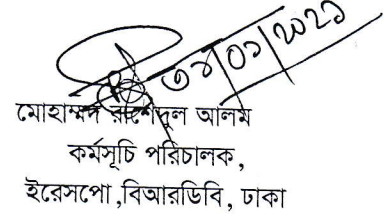 ৩১/০১/২০২১
মোহাম্মদ রাশেদুল আলম
কর্মসূচি পরিচালক,
ইরেসপো,বিআরডিবি, ঢাকা